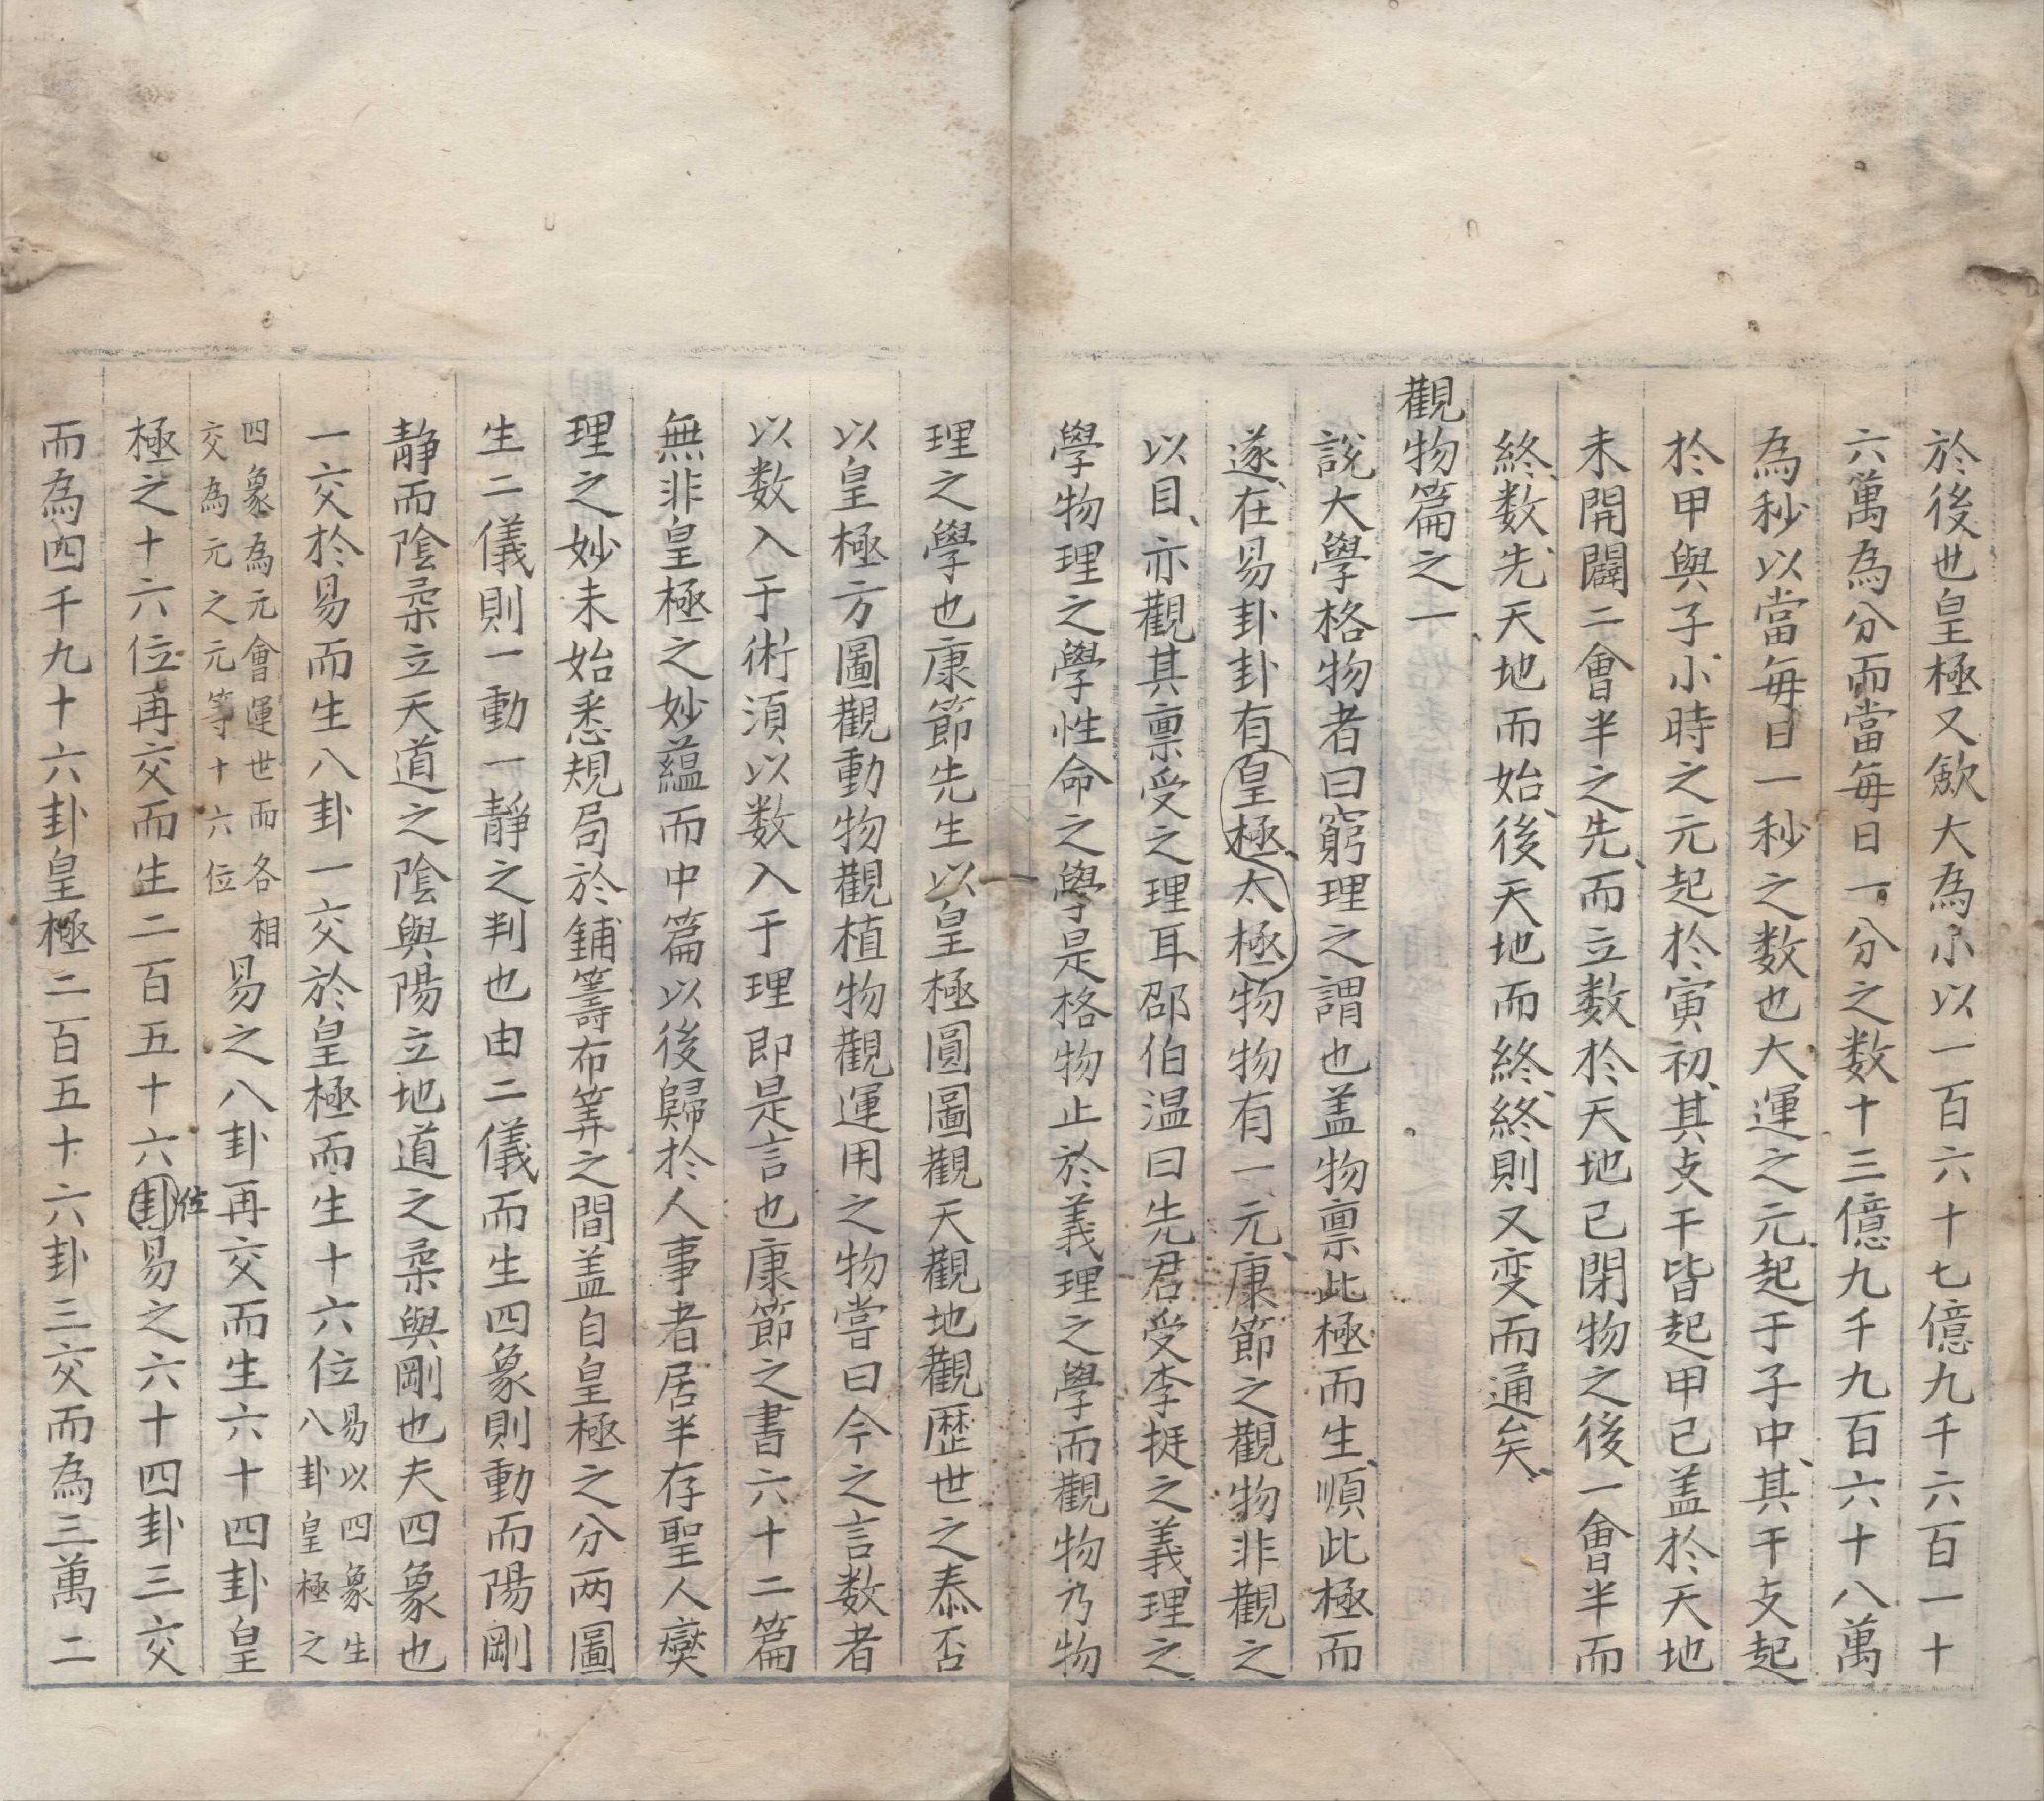 於後世皇極又歛大為小以一百六十七億九千六百一十
六萬為分而當每日一分之数十三億九千九百六十八萬
為秒以當每日一秒之数也大運之元起于子中其干支起
於甲與子小時之元起於寅初其支干皆起甲己盖於天地
未開闢二會半之先而立数於天地已閉物之後一會半而
終数先天地而始後天地而終終則又变而通矣
觀物篇之一
說大學格物者曰窮理之謂也盖物禀此極而生順此極而
遂在易卦卦有皇極太極物物有一元康節之觀物非觀之
以目亦觀其禀受之理耳邵伯温曰先君受李挺之義理之
學物理之學性命之學是格物止於義理之學而觀物乃物
理之學也康節先生以皇極圓圖觀天觀地觀歷世之泰否
以皇極方圖觀動物觀植物觀運用之物嘗曰今之言数者
以数入于術湏以数入于理即是言也康節之書六十二篇
無非皇極之妙蘊而中篇以後歸於人事者居半存聖人爕
理之妙未始悉規局於鋪籌布筭之間盖自皇極之分两圖
生二儀則一動一靜之判也由二儀而生四象則動而陽剛
静而陰柔立天道之陰與陽立地道之柔與剛也夫四象也
一交於易而生八卦一交於皇極而生十六位易以四象生八卦皇極之
四象為元會運世而各相交為元之元等十六位易之八卦再交而生六十四卦皇
極之十六位再交而生二百五十六卦位易之六十四卦三交
而為四千九十六卦皇極二百五十六卦三交而為三萬二